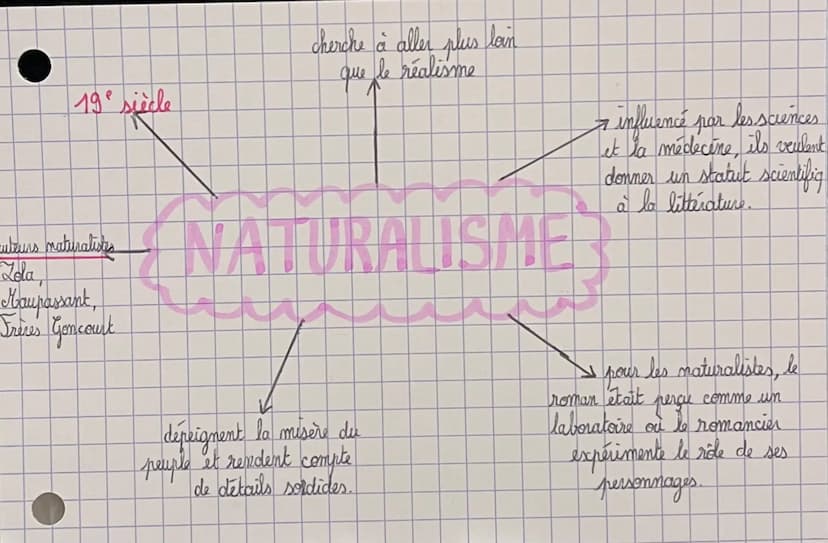 cherche à aller plus loin
que le réalisme
19e siècle
influencé par les sciences
et la médecine, ils veulent
donner un statut scientifiq
à la littérature.
NATURALISME
uteurs naturalistes
Zola,
Maupassant,
Frères Goncourt
dépeignent la misère du
peuple et rendent compte
de détails sordides.
pour les naturalistes, le
roman était perçu comme un
laboratoire où le romancier
expérimente le rôle de ses
personnages.